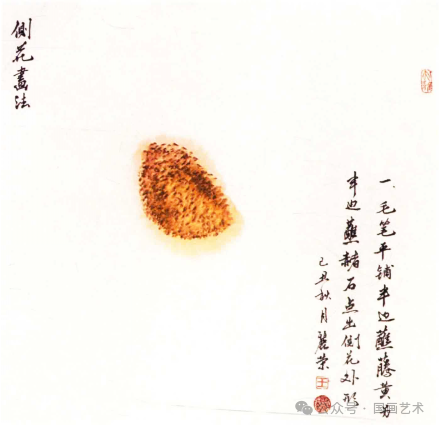 侧花画法
一、毛笔平铺半边蘸藤黄另
半边蘸赭石点出侧花外形
己丑秋月丽荣
公众号·国画艺术